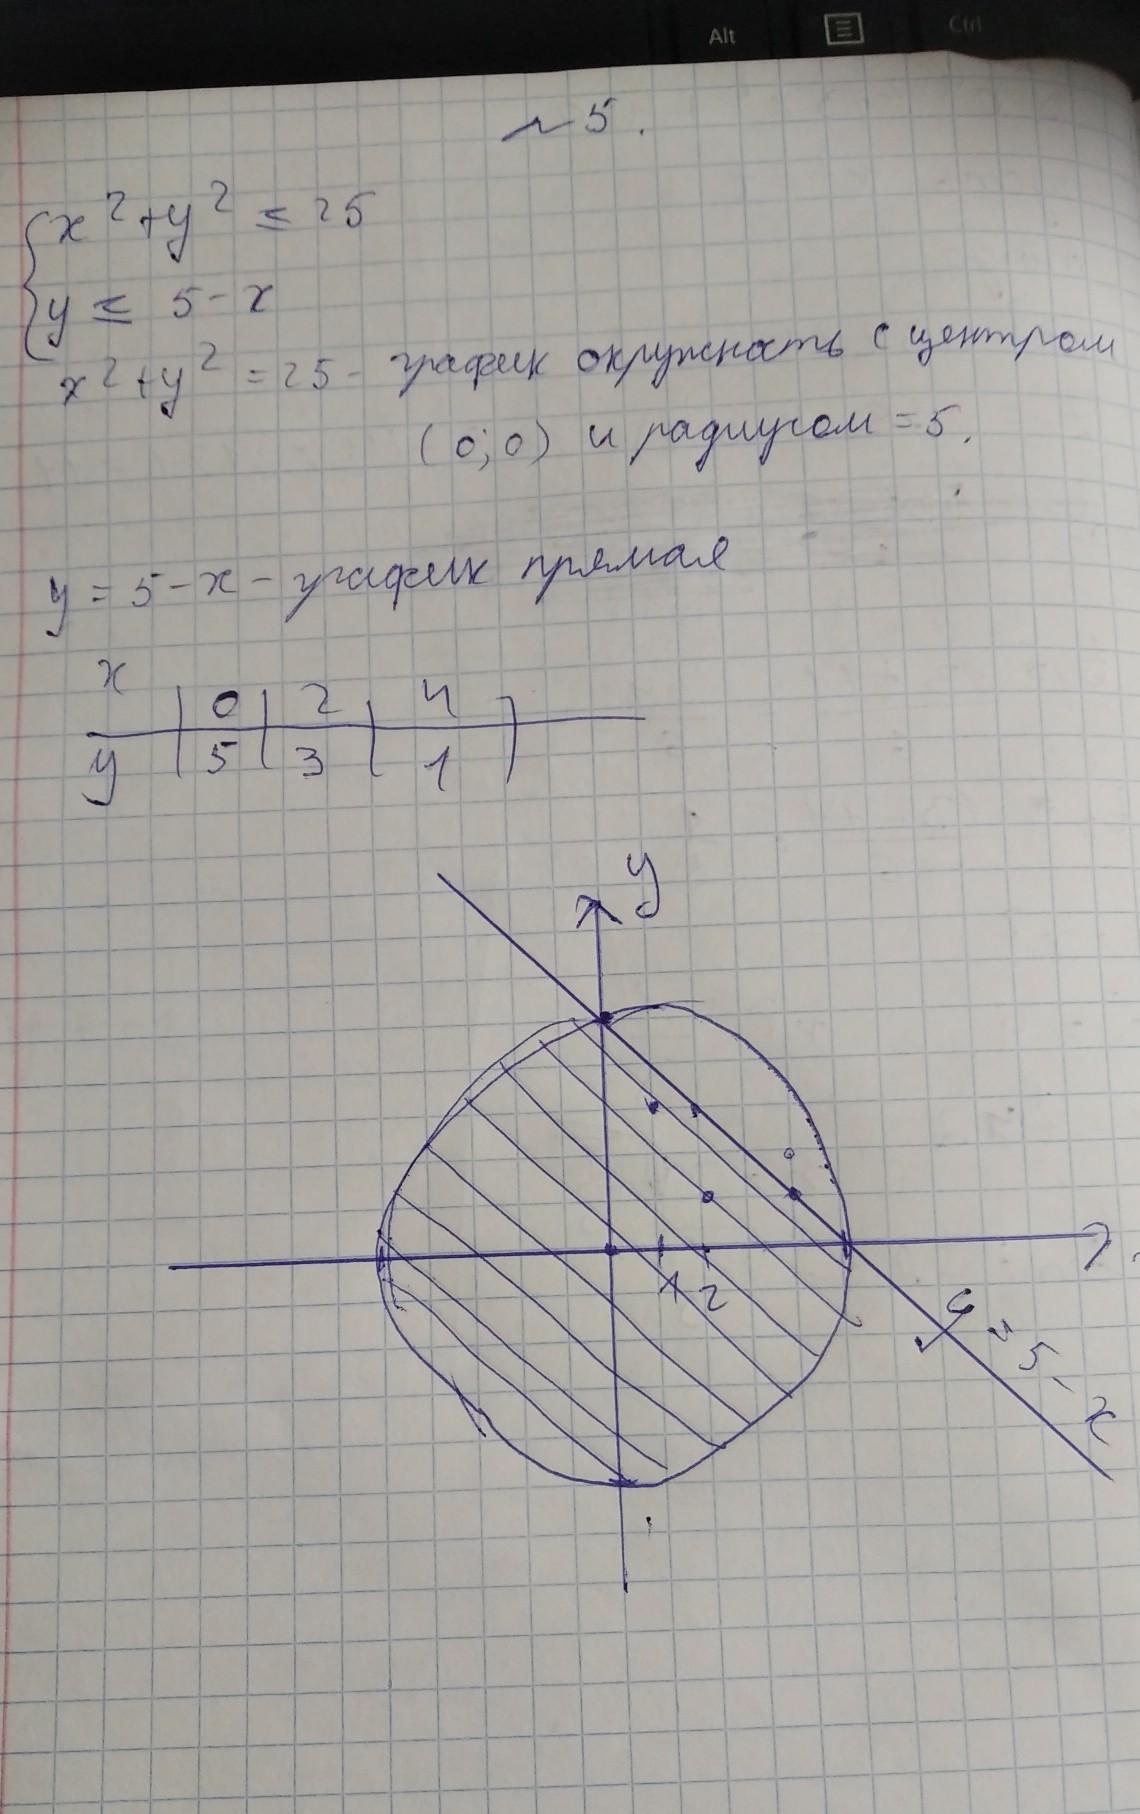 Alt Ctrl
№5.
x²+y² ≤ 25
y ≤ 5-x
x²+y² = 25 - график окружность с центром
(0;0) и радиусом = 5.
y = 5-x - график прямая
x | 0 | 2 | 4 |
y | 5 | 3 | 1 |
y
1 2
y = 5-x